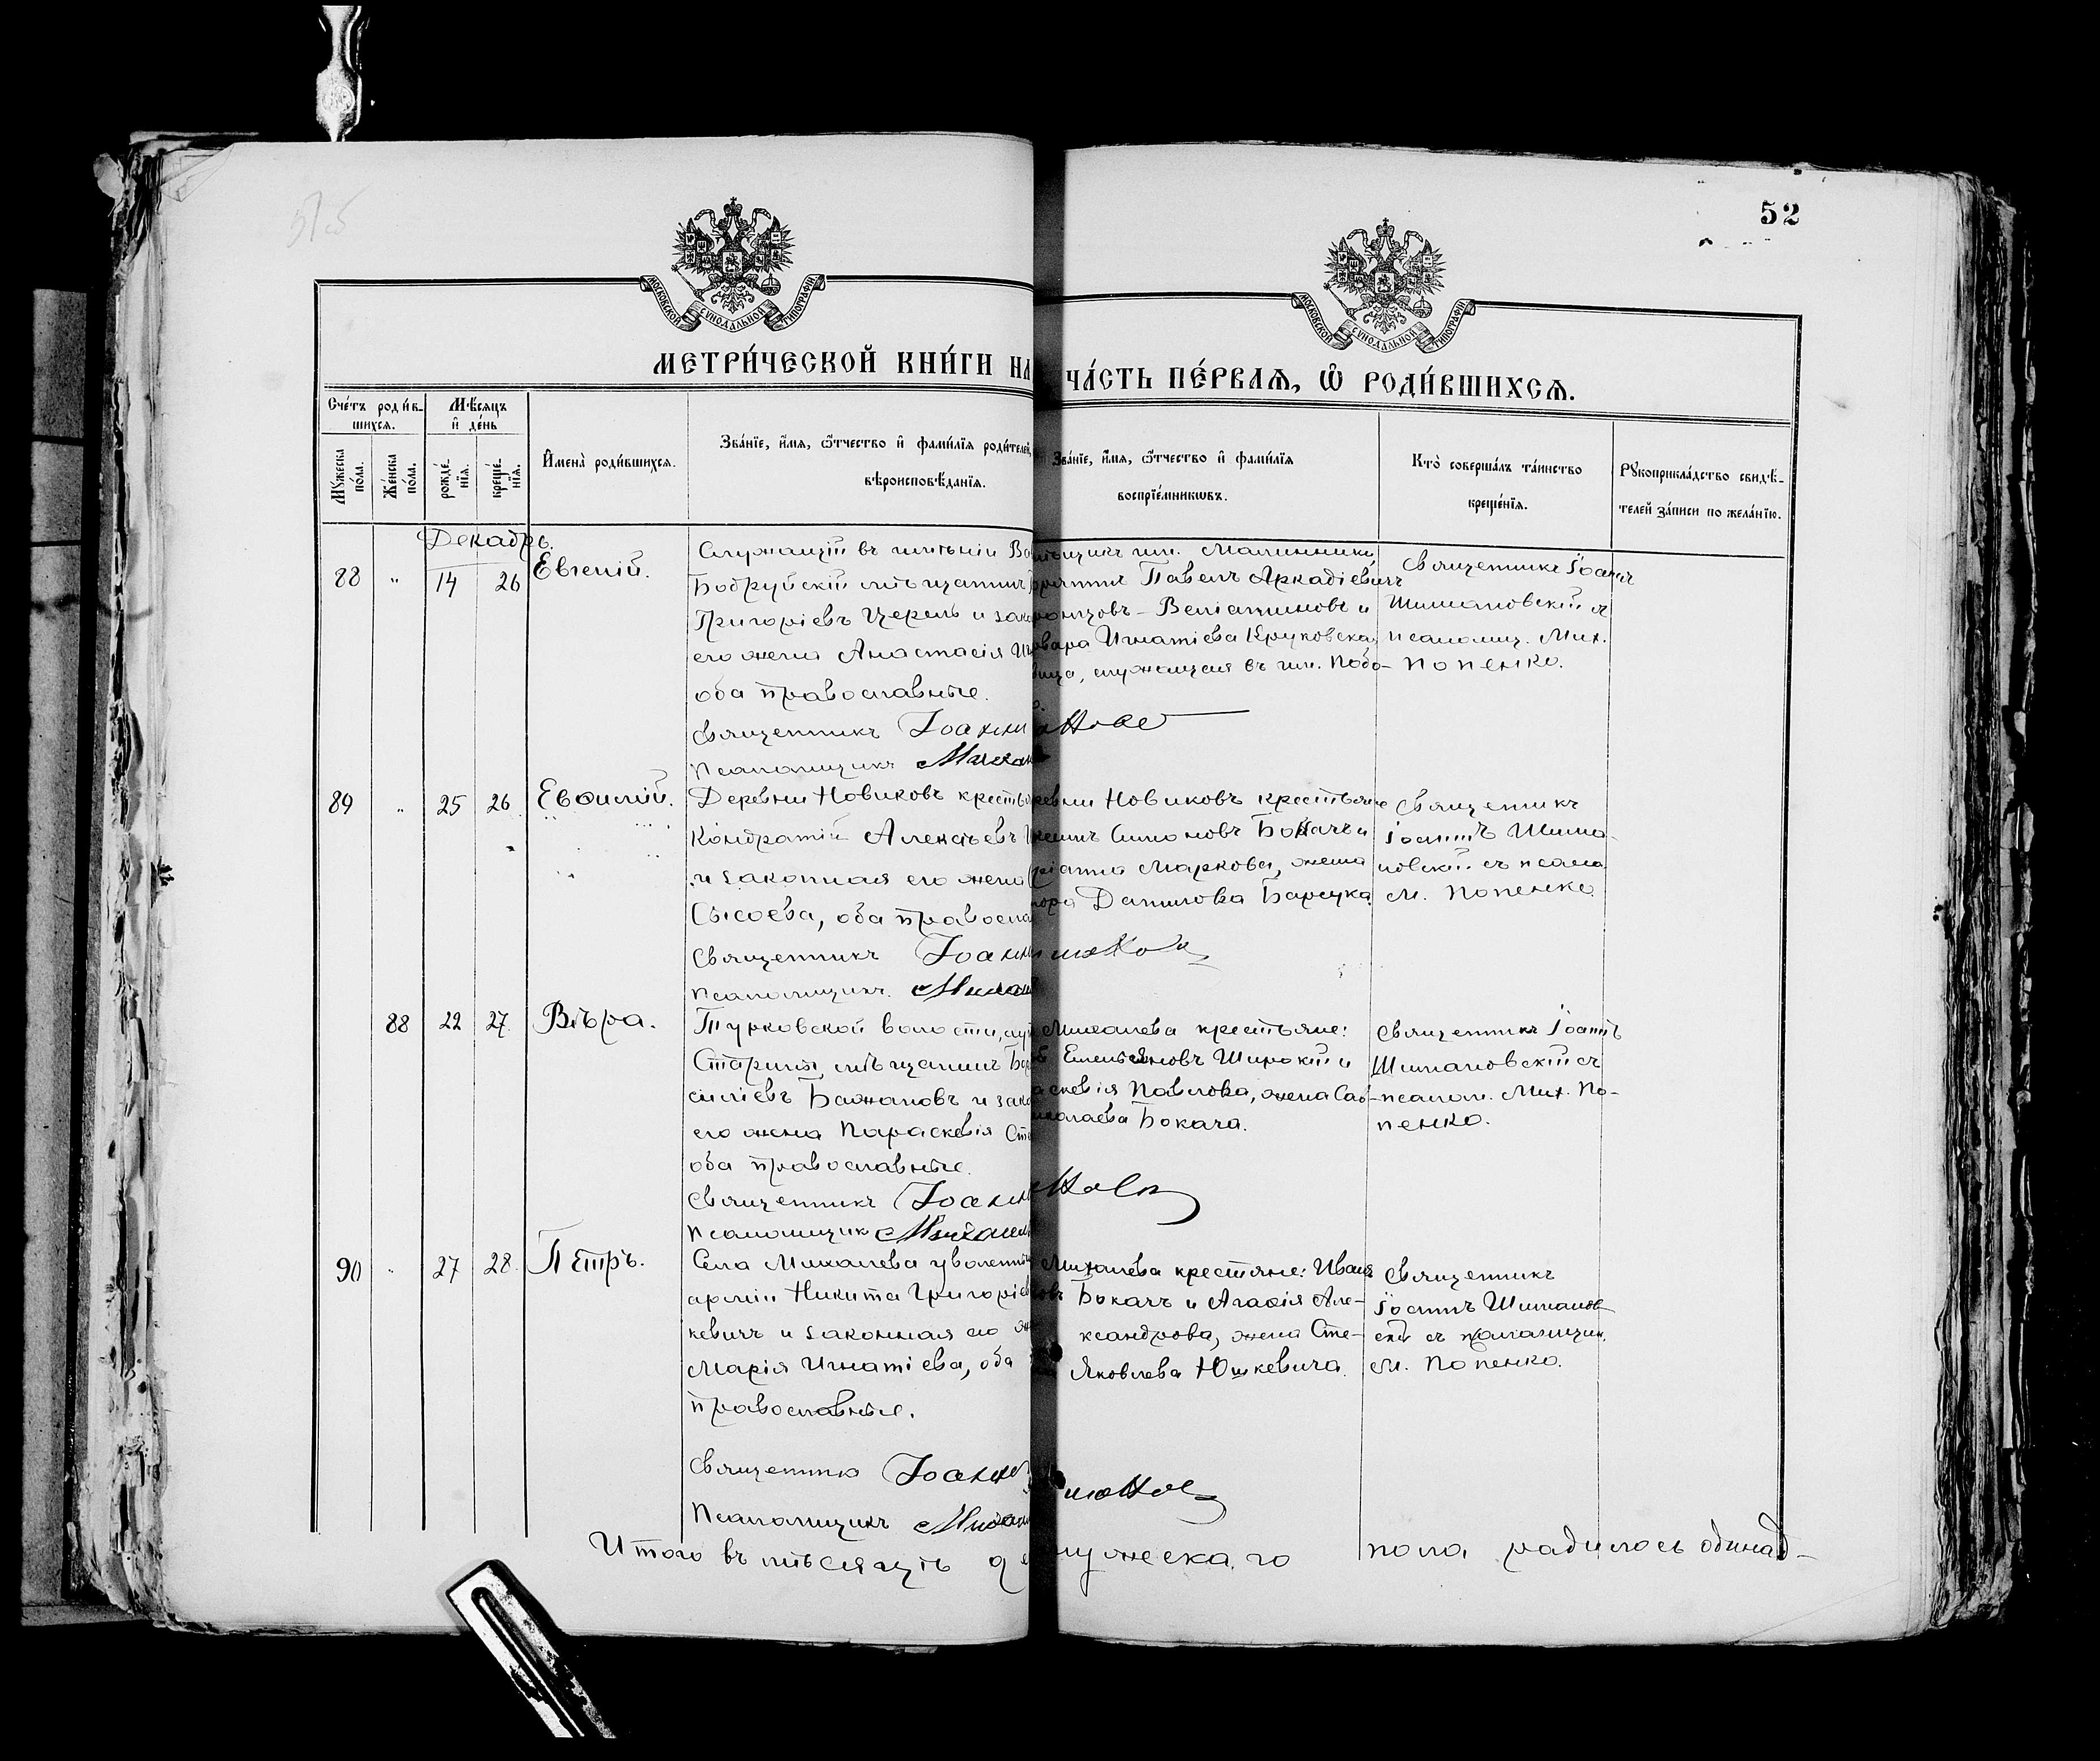 52
МОСКОВСКОЙ СѴНОДАЛЬНОЙ ТИПОГРАФІИ
МОСКОВСКОЙ СѴНОДАЛЬНОЙ ТИПОГРАФІИ
МЕТРИ́ЧЕСКОЙ КНИ́ГИ НА
ЧА́СТЬ ПЕ́РВАѦ, Ѿ РОДИ́ВШИХСѦ.
Сче́тъ роди́в-
шихсѧ.
Мꙋ́жеска по́ла.
Же́нска по́ла.
Мѣ́сѧцъ
и҆ де́нь
рожде́-нїѧ.
креще́-нїѧ.
И҆мена̀ роди́вшихсѧ.
Зва́нїе, и҆́мѧ, ѻ҆́тчество и҆ фами́лїѧ роди́телей,
вѣроисповѣ́данїѧ.
Зва́нїе, и҆́мѧ, ѻ҆́тчество и҆ фами́лїѧ
воспрїе́мникѡвъ.
Кто̀ соверша́лъ та́инство
креще́нїѧ.
Рꙋкоприкла́дство свидѣ́-
телей за́писи по жела́нїю.
Декабрь.
88 " 14 26 Евгеній.
Служащій въ имѣніи Ва
Бобруйскій мѣщанинъ
Григоріевъ Церень и зако
его жена Анастасія Иг
оба православные.
Священникъ Іоанн
Псаломщикъ Михаи
им. Малинники
Павелъ Аркадіевичъ
Веніаминовъ и
Игнатіева Круковска
служащая въ им. Подо-
Священникъ Іоаннъ
Шимановскій съ
псаломщ. Мих.
Попенко.
89 " 25 26 Евѳимій.
Деревни Новиковъ крестья
Кондратій Алексѣевъ
и законная его жена
Сысоева, оба правосла
Священникъ Іоанн
Псаломщикъ Михаи
ревни Новиковъ крестьяне
Симоновъ Бокачъ и
Маркова, жена
Данилова Барсука.
Священникъ
Іоаннъ Шима-
новскій съ псало
М. Попенко.
88 22 27 Вѣра.
Турковской волости,
мѣщанинъ
силіевъ Бажановъ и зако
его жена Параскевія Сте
оба православные.
Священникъ Іоанн
Псаломщик Михаил
Михалева крестьяне:
Емельяновъ Широкій и
аскевія Павлова, жена Сав-
иколаева Бокача.
Священникъ Іоаннъ
Шимановскій съ
псалом. Мих. По-
пенко.
90 " 27 28 Петръ.
Села Михалева уволенный
арміи Никита Григоріев
кевичъ и законная его
Марія Игнатіева, оба
православные.
Священник Іоанн
Псаломщикъ Михаи
Михалева крестяне: Иванъ
Бокачъ и Агаѳія Але-
ксандрова, жена Сте-
Яковлева Юшкевича.
Священникъ
Іоаннъ Шиманов
скій съ псаломщик.
М. Попенко.
Итого въ мѣсяцѣ де
мужеска.го пола родилось одинад-